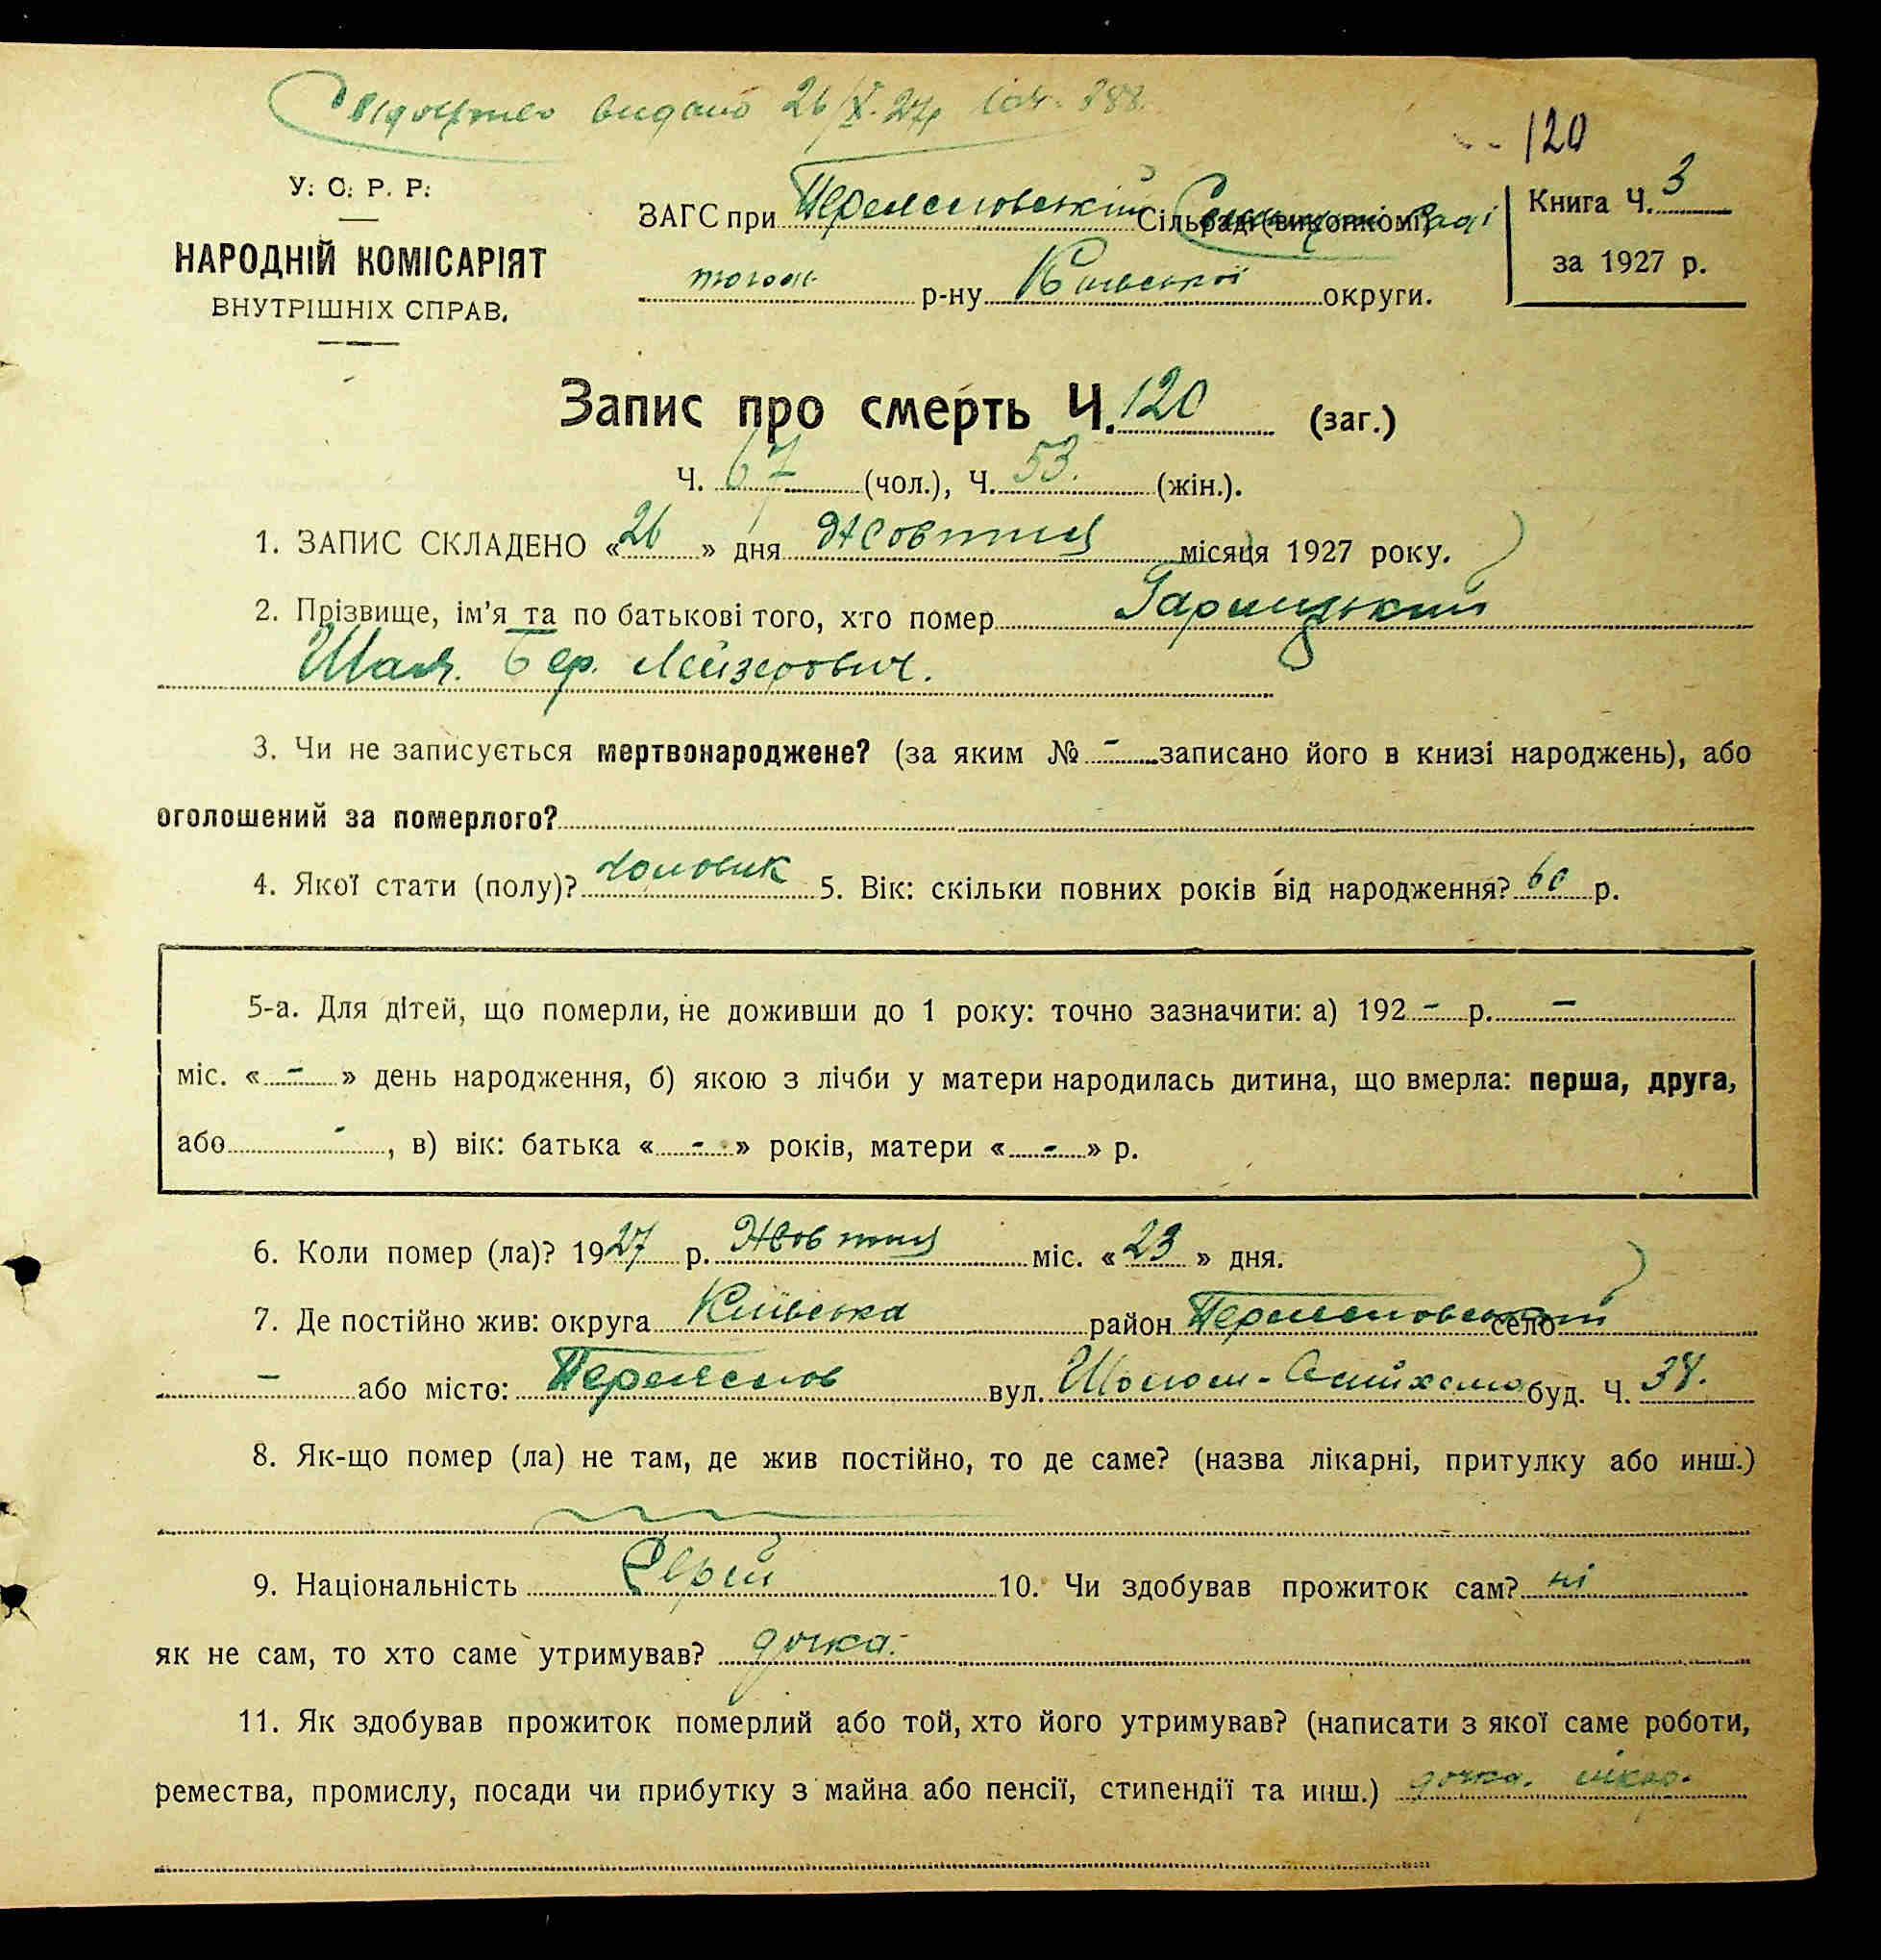 видано 26/X.27р
120
У. С. Р. Р.
НАРОДНІЙ КОМІСАРІЯТ
ВНУТРІШНІХ СПРАВ.
ЗАГС при Переяславський Сільраді (виконкомі)
р-ну Київської округи.
Книга Ч. 3
за 1927 р.
Запис про смерть Ч. 120 (заг.)
Ч. 67 (чол.), Ч. 53. (жін.).
1. ЗАПИС СКЛАДЕНО «26» дня Жовтня місяця 1927 року.
2. Прізвище, ім'я та по батькові того, хто помер
Бер. Лейзерович.
3. Чи не записується мертвонароджене? (за яким № - записано його в книзі народжень), або
оголошений за померлого?
4. Якої стати (полу)? Чоловік 5. Вік: скільки повних років від народження? 60 р.
5-а. Для дітей, що померли, не доживши до 1 року: точно зазначити: а) 192 - р. -
міс. « - » день народження, б) якою з лічби у матери народилась дитина, що вмерла: перша, друга,
або - , в) вік: батька « - » років, матери « - » р.
6. Коли помер (ла)? 1927 р. Жовтня міс. «23» дня.
7. Де постійно жив: округа Київська район Переяславський село
- або місто: Переяслов вул. Шолом-Алейхема буд. Ч. 38.
8. Як-що помер (ла) не там, де жив постійно, то де саме? (назва лікарні, притулку або инш.)
9. Національність Єврей 10. Чи здобував прожиток сам? ні
як не сам, то хто саме утримував? дочка.
11. Як здобував прожиток померлий або той, хто його утримував? (написати з якої саме роботи,
ремества, промислу, посади чи прибутку з майна або пенсії, стипендії та инш.) дочка. лікар.